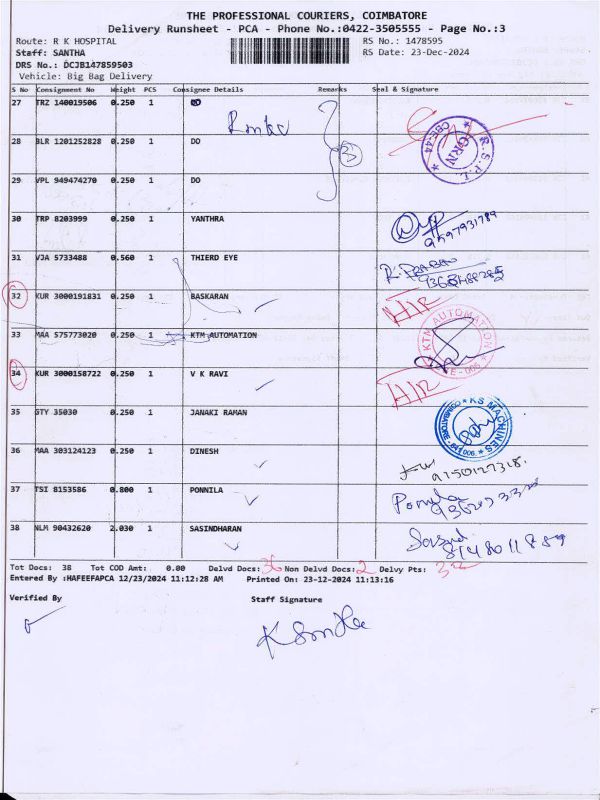 THE PROFESSIONAL COURIERS, COIMBATORE
Delivery Runsheet - PCA - Phone No.:0422-3505555 - Page No.:3
Route: R K HOSPITAL RS No.: 1478595
Staff: SANTHA RS Date: 23-Dec-2024
DRS No.: DCJB147859503
Vehicle: Big Bag Delivery
S No Consignment No Weight PCS Consignee Details Remarks Seal & Signature
27 TRZ 140019506 0.250 1 DO
28 BLR 1201252828 0.250 1 DO
3
R.S.P.L. GRN CBE-44
29 VPL 949474270 0.250 1 DO
30 TRP 8203999 0.250 1 YANTHRA
9597931789
31 VJA 5733488 0.560 1 THIERD EYE
32 KUR 3000191831 0.250 1 BASKARAN H/R
33 MAA 575773020 0.250 1 KTM AUTOMATION
KTM AUTOMATION
34 KUR 3000158722 0.250 1 V K RAVI H/R
35 GTY 35030 0.250 1 JANAKI RAMAN
KS MACHINES COIMBATORE - 641 006.
36 MAA 303124123 0.250 1 DINESH
9750127318.
37 TSI 8153586 0.800 1 PONNILA Ponnila
38 NLM 90432620 2.030 1 SASINDHARAN
Tot Docs: 38 Tot COD Amt: 0.00 Delvd Docs: 36 Non Delvd Docs: 2 Delvy Pts: 32
Entered By :HAFEEFAPCA 12/23/2024 11:12:28 AM Printed On: 23-12-2024 11:13:16
Verified By Staff Signature